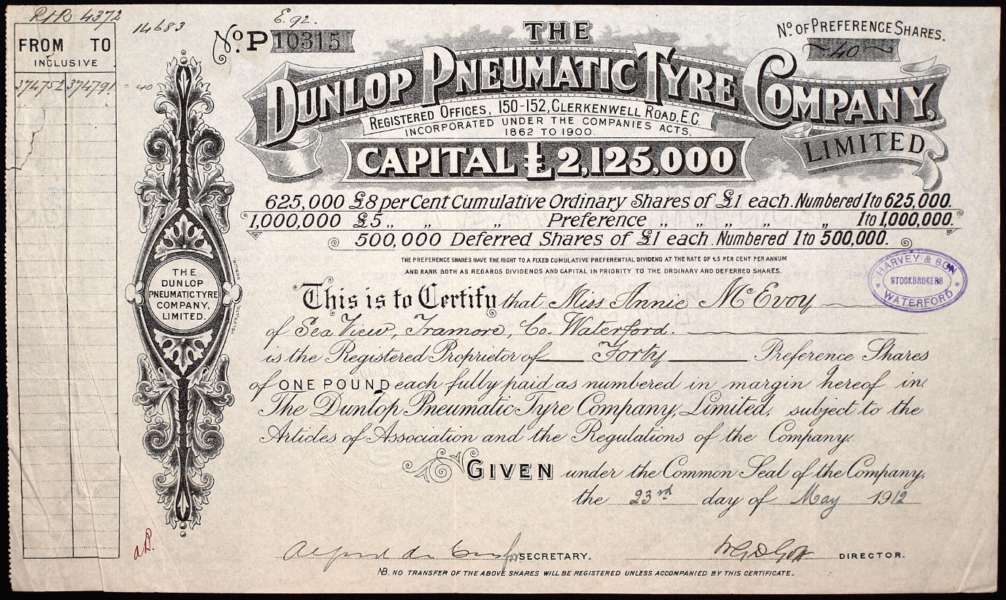 R&R 4372
14683
E.92.
FROM TO
INCLUSIVE
374752 374791 = 40
No. P 10315
No. OF PREFERENCE SHARES.
40
THE
DUNLOP PNEUMATIC TYRE COMPANY,
LIMITED
REGISTERED OFFICES, 150-152, CLERKENWELL ROAD, E.C
INCORPORATED UNDER THE COMPANIES ACTS,
1862 TO 1900.
CAPITAL £2,125,000
625,000 £8 per Cent Cumulative Ordinary Shares of £1 each. Numbered 1 to 625,000.
1,000,000 £5 „ „ „ Preference „ „ „ „ „ 1 to 1,000,000.
500,000 Deferred Shares of £1 each. Numbered 1 to 500,000.
THE PREFERENCE SHARES HAVE THE RIGHT TO A FIXED CUMULATIVE PREFERENTIAL DIVIDEND AT THE RATE OF £5 PER CENT PER ANNUM
AND RANK BOTH AS REGARDS DIVIDENDS AND CAPITAL IN PRIORITY TO THE ORDINARY AND DEFERRED SHARES.
HARVEY & SON
STOCKBROKERS
WATERFORD
THE
DUNLOP
PNEUMATIC TYRE
COMPANY,
LIMITED.
This is to Certify that Miss Annie McEvoy
of Sea View, Tramore, Co. Waterford.
is the Registered Proprietor of Forty Preference Shares
of ONE POUND each fully paid as numbered in margin hereof in
The Dunlop Pneumatic Tyre Company, Limited, subject to the
Articles of Association and the Regulations of the Company.
GIVEN under the Common Seal of the Company,
the 23rd day of May 1912
SECRETARY. DIRECTOR.
NB. NO TRANSFER OF THE ABOVE SHARES WILL BE REGISTERED UNLESS ACCOMPANIED BY THIS CERTIFICATE.